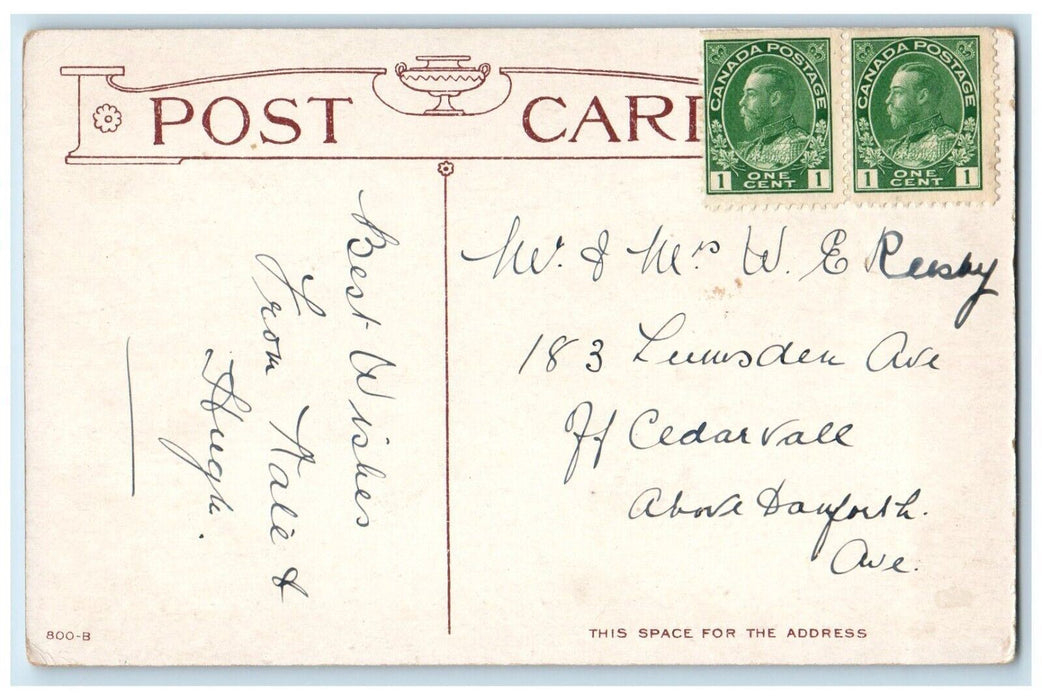 POST CARD
CANADA POSTAGE
1 ONE CENT 1
CANADA POSTAGE
1 ONE CENT 1
Best Wishes
From Kate &
Hugh.
Mr. & Mrs W. E
183 Lumsden Ave
Off Cedarvale
Above Danforth.
Ave.
800-B
THIS SPACE FOR THE ADDRESS